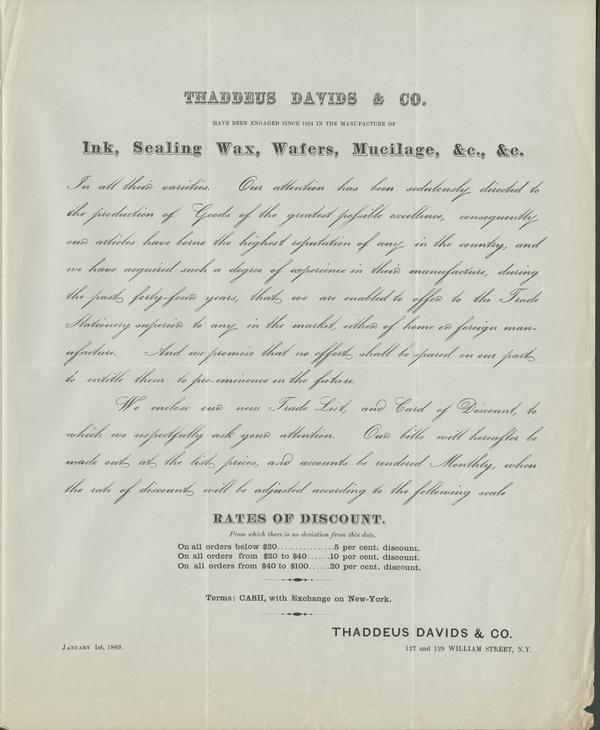 THADDEUS DAVIDS & CO.
HAVE BEEN ENGAGED SINCE 1824 IN THE MANUFACTURE OF
Ink, Sealing Wax, Wafers, Mucilage, &c., &c.
In all their varieties. Our attention has been sedulously directed to
the production of Goods of the greatest possible excellence, consequently
our articles have borne the highest reputation of any in the country, and
we have acquired such a degree of experience in their manufacture, during
the past forty-four years, that we are enabled to offer to the Trade
Stationery superior to any in the market, either of home or foreign man-
ufacture. And we promise that no effort shall be spared on our part
to entitle them to pre-eminence in the future.
We enclose our new Trade List, and Card of Discount, to
which we respectfully ask your attention. Our bills will hereafter be
made out at the list prices, and accounts be rendered Monthly, when
the rate of discount will be adjusted according to the following scale
RATES OF DISCOUNT.
From which there is no deviation from this date.
On all orders below $20................5 per cent. discount.
On all orders from $20 to $40......10 per cent. discount.
On all orders from $40 to $100......20 per cent. discount.
Terms: CASH, with Exchange on New-York.
THADDEUS DAVIDS & CO.
January 1st, 1869.
127 and 129 WILLIAM STREET, N.Y.